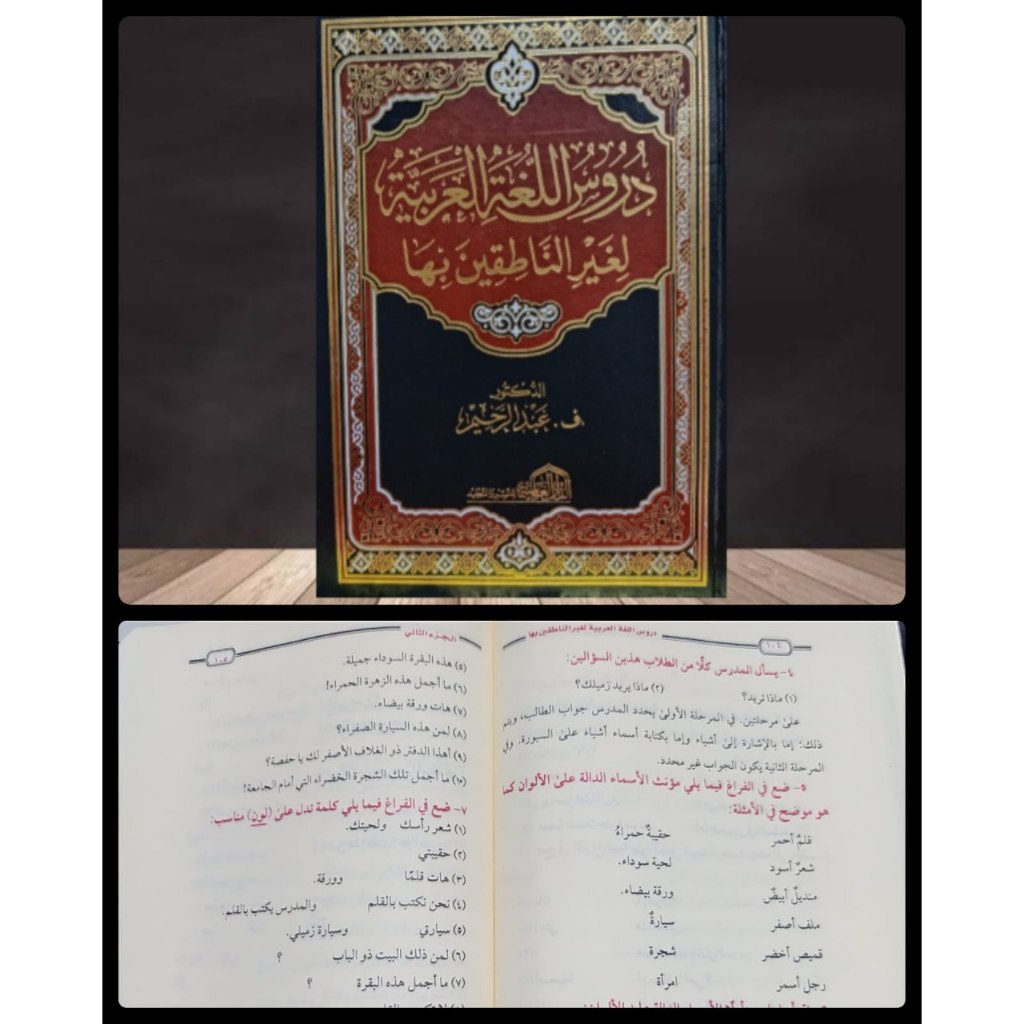 دُرُوسُ اللُّغَةِ العَرَبِيَّةِ
لِغَيْرِ النَّاطِقِينَ بِهَا
الدكتور
ف. عَبْدُ الرَّحِيمِ
دروس اللغة العربية لغير الناطقين بها
١٠٤
٤- يسأل المدرس كلًّا من الطلاب هذين السؤالين:
(١) ماذا تريد؟ (٢) ماذا يريد زميلك؟
على مرحلتين. في المرحلة الأولى يحدد المدرس جواب الطالب، ويتم
ذلك: إما بالإشارة إلى أشياء وإما بكتابة أسماء أشياء على السبورة. وفي
المرحلة الثانية يكون الجواب غير محدد.
٥- ضع في الفراغ فيما يلي مؤنث الأسماء الدالة على الألوان كما
هو موضح في الأمثلة:
قلمٌ أحمر حقيبةٌ حمراءُ
شعرٌ أسود لحية سوداء.
منديلٌ أبيضٌ ورقة بيضاء.
ملف أصفر سيارةٌ
قميص أخضر شجرة
رجل أسمر امرأة
الجزء الثاني
١٠٥
(٥) هذه البقرة السوداء جميلة.
(٦) ما أجمل هذه الزهرة الحمراء!
(٧) هات ورقة بيضاء.
(٨) لمن هذه السيارة الصفراء؟
(٩) أهذا الدفتر ذو الغلاف الأصفر لك يا حفصة؟
(١٠) ما أجمل تلك الشجرة الخضراء التي أمام الجامعة!
٧- ضع في الفراغ فيما يلي كلمة تدل على (لون) مناسب:
(١) شعر رأسك ولحيتك.
(٢) حقيبتي
(٣) هات قلمًا وورقة.
(٤) نحن نكتب بالقلم والمدرس يكتب بالقلم.
(٥) سيارتي وسيارة زميلي.
(٦) لمن ذلك البيت ذو الباب ؟
(٧) ما أجمل هذه البقرة ؟